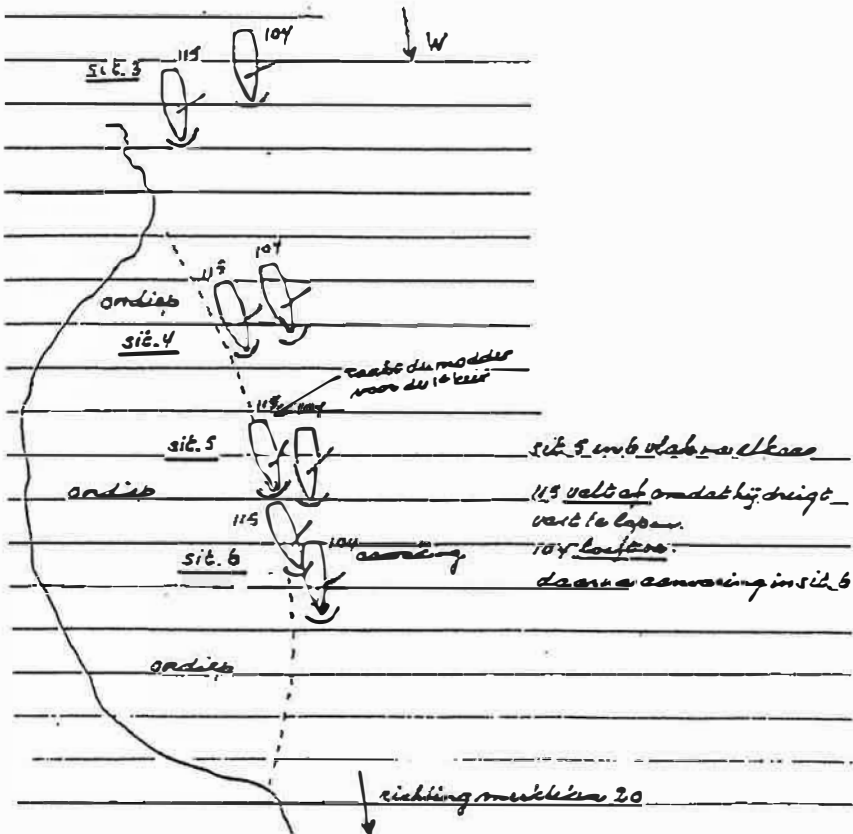 W
104
115
sit. 3
104
115
ondiep
sit. 4
raakt de modder
voor de 1e keer
115 104
sit. 5
sit. 5 en 6 vlak na elkaar
ondiep
115 valt af omdat hij dreigt
vast te lopen.
115
104 aanvaring
104 loeft op.
sit. 6
daarna aanvaring in sit. 6
ondiep
richting 20